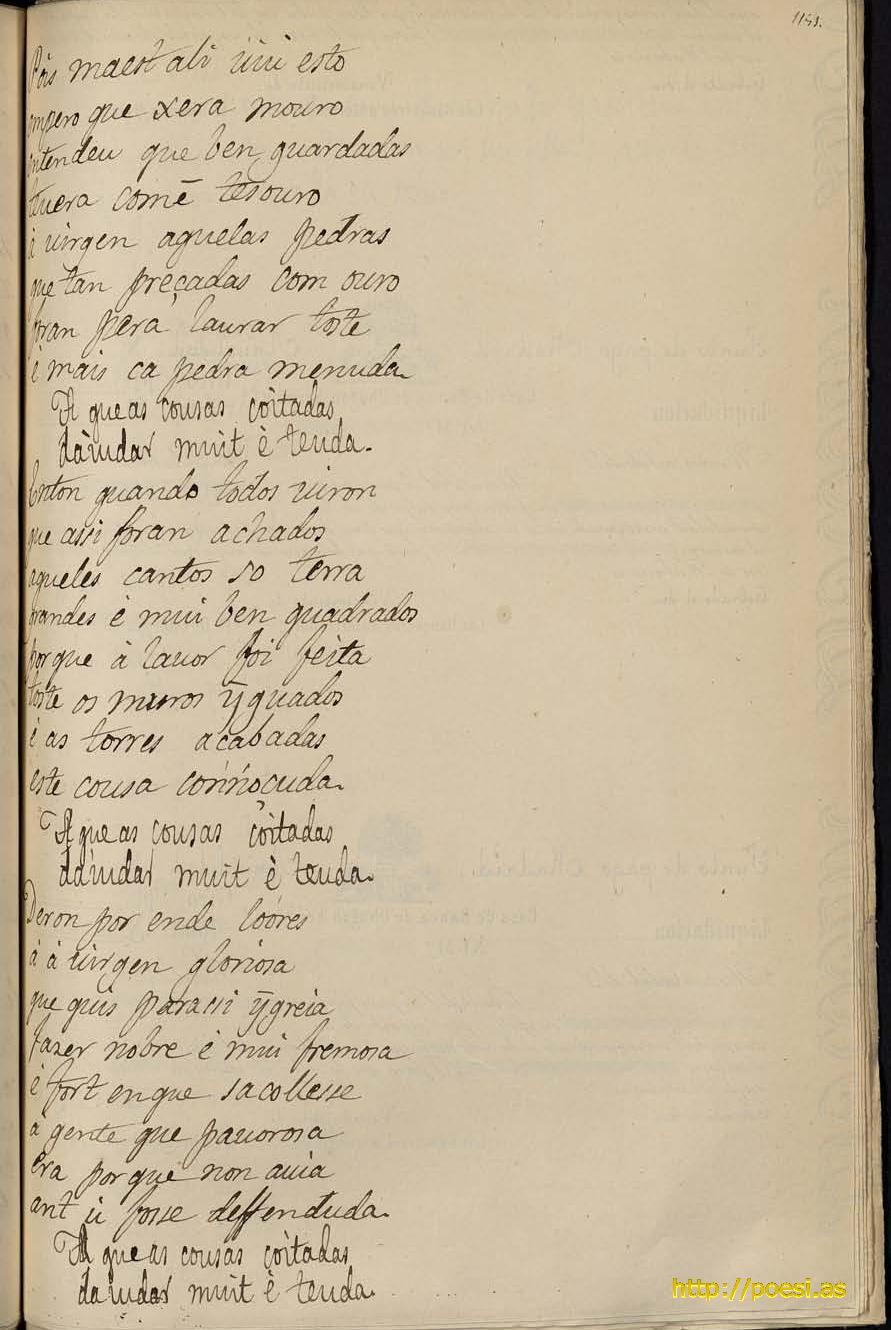 1153.
Pois maest ali uiu esto
empero que xera mouro
entendeu que ben guardadas
teuera comē tesouro
à uirgen aquelas pedras
que tan preçadas com ouro
foran pera laurar toste
è mais ca pedra menuda.
A que as cousas coitadas
dàiudar muit è teuda.
Enton quando todos uiron
que assi foran achados
aqueles cantos so terra
grandes è mui ben quadrados
porque à lauor foi feita
toste os muros ȳguados
è as torres acabadas
este cousa coñnoçuda.
A que as cousas coitadas
dàiudar muit è teuda.
Deron por ende loóres
à à uirgen gloriosa
que quis parassi ȳgreia
fazer nobre è mui fremosa
è fort enque sacollesse
a gente que pauorosa
era porque non auia
ant ù fosse deffenduda.
A que as cousas coitadas
dàiudar muit è teuda.
http://poesi.as